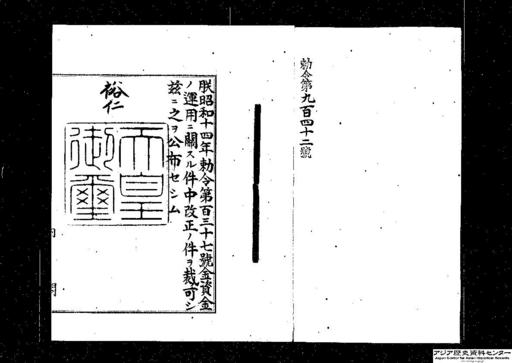 勅令第九百四十二號
朕昭和十四年勅令第百三十七號金資金
ノ運用ニ關スル件中改正ノ件ヲ裁可シ
茲ニ之ヲ公布セシム
裕仁
天皇
御璽
アジア歴史資料センター
Japan Center for Asian Historical Records